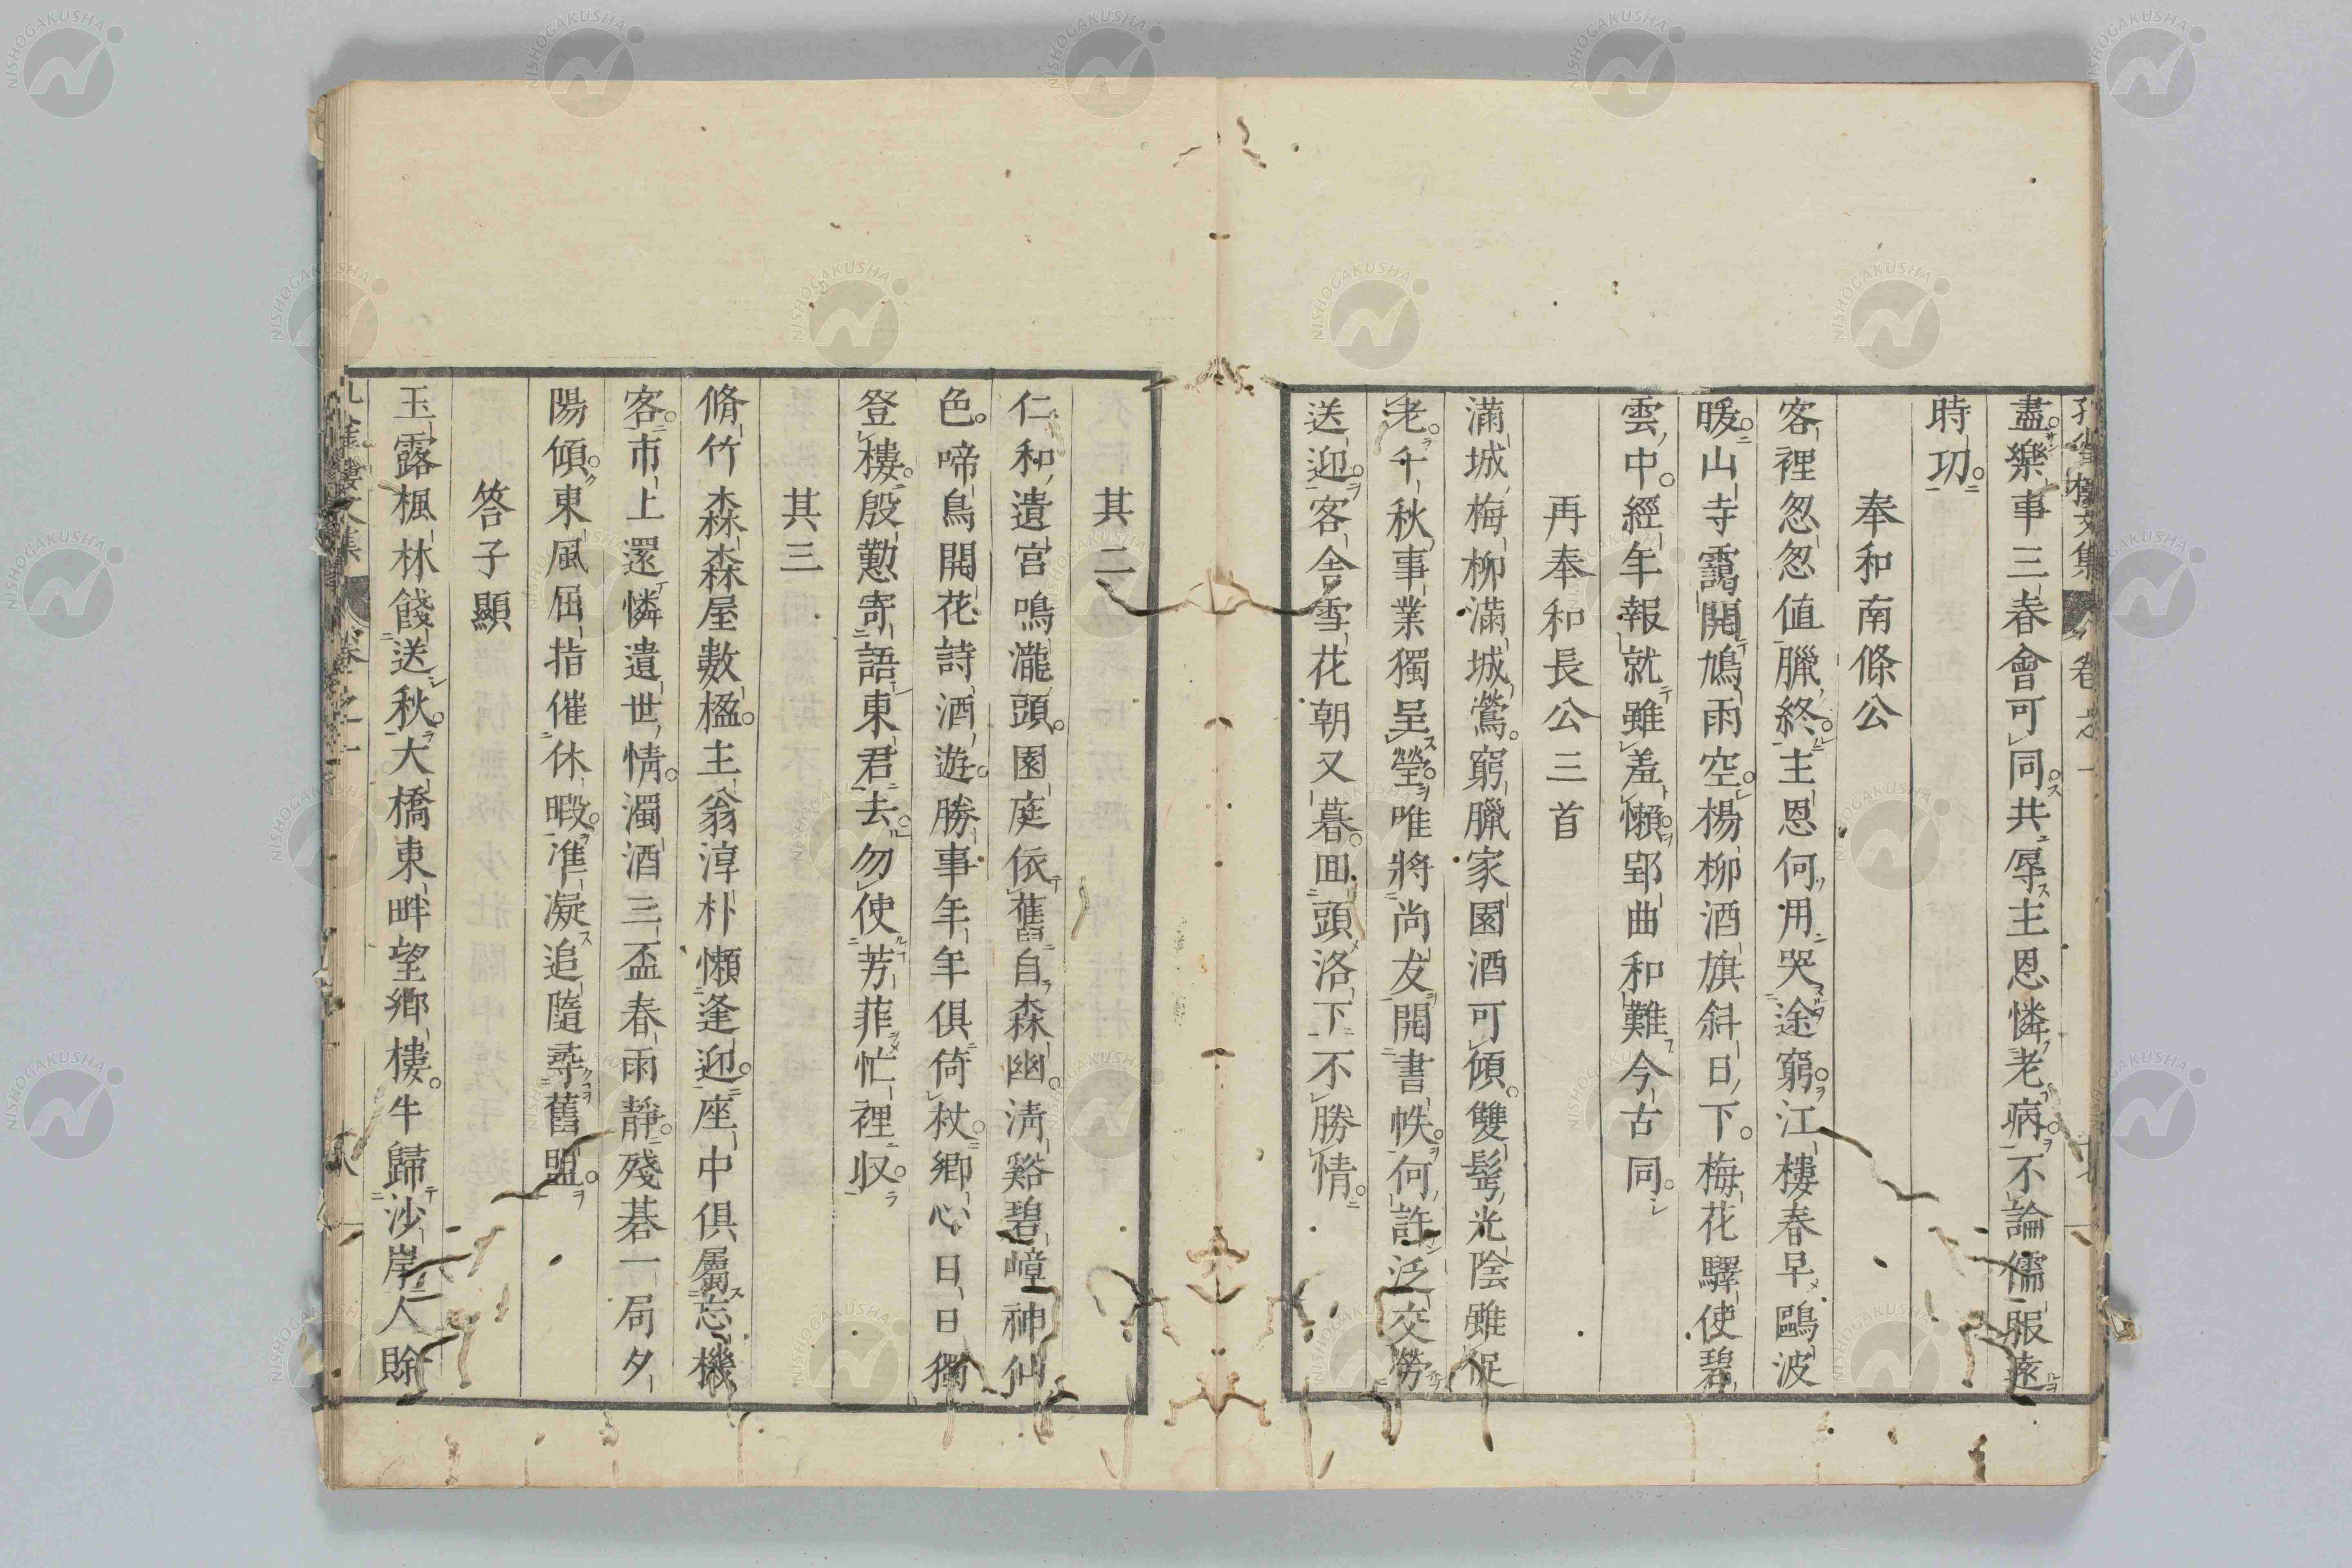 孔雀樓文集 卷之一
盡樂事三春會可同共辱主恩憐老病不論儒服遠
時功
奉和南條公
客裡忽忽値臘終主恩何用哭途窮江樓春早鷗波
暖山寺靄開鳩雨空楊柳酒旗斜日下梅花驛使碧
雲中經年報就雖羞懶郢曲和難今古同
再奉和長公三首
滿城梅柳滿城鶯窮臘家園酒可傾雙髩光陰雖促
老千秋事業獨呈瑩唯將尚友開書帙何許泛交勞
送迎客舍雪花朝又暮囬頭洛下不勝情
其二
仁和遺宮鳴瀧頭園庭依舊自森幽淸谿碧嶂神仙
色啼鳥開花詩酒遊勝事年年俱倚杖鄉心日日獨
登樓殷懃寄語東君去勿使芳菲忙裡収
其三
脩竹森森屋數楹主翁淳朴懶逢迎座中俱屬忘機
客市上還憐遺世情濁酒三盃春雨靜殘碁一局夕
陽傾東風屈指催休暇準凝追隨尋舊盟
答子顯
玉露楓林餞送秋大橋東畔望鄉樓牛歸沙岸人賒
孔雀樓文集 卷之一
NISHOGAKUSHA